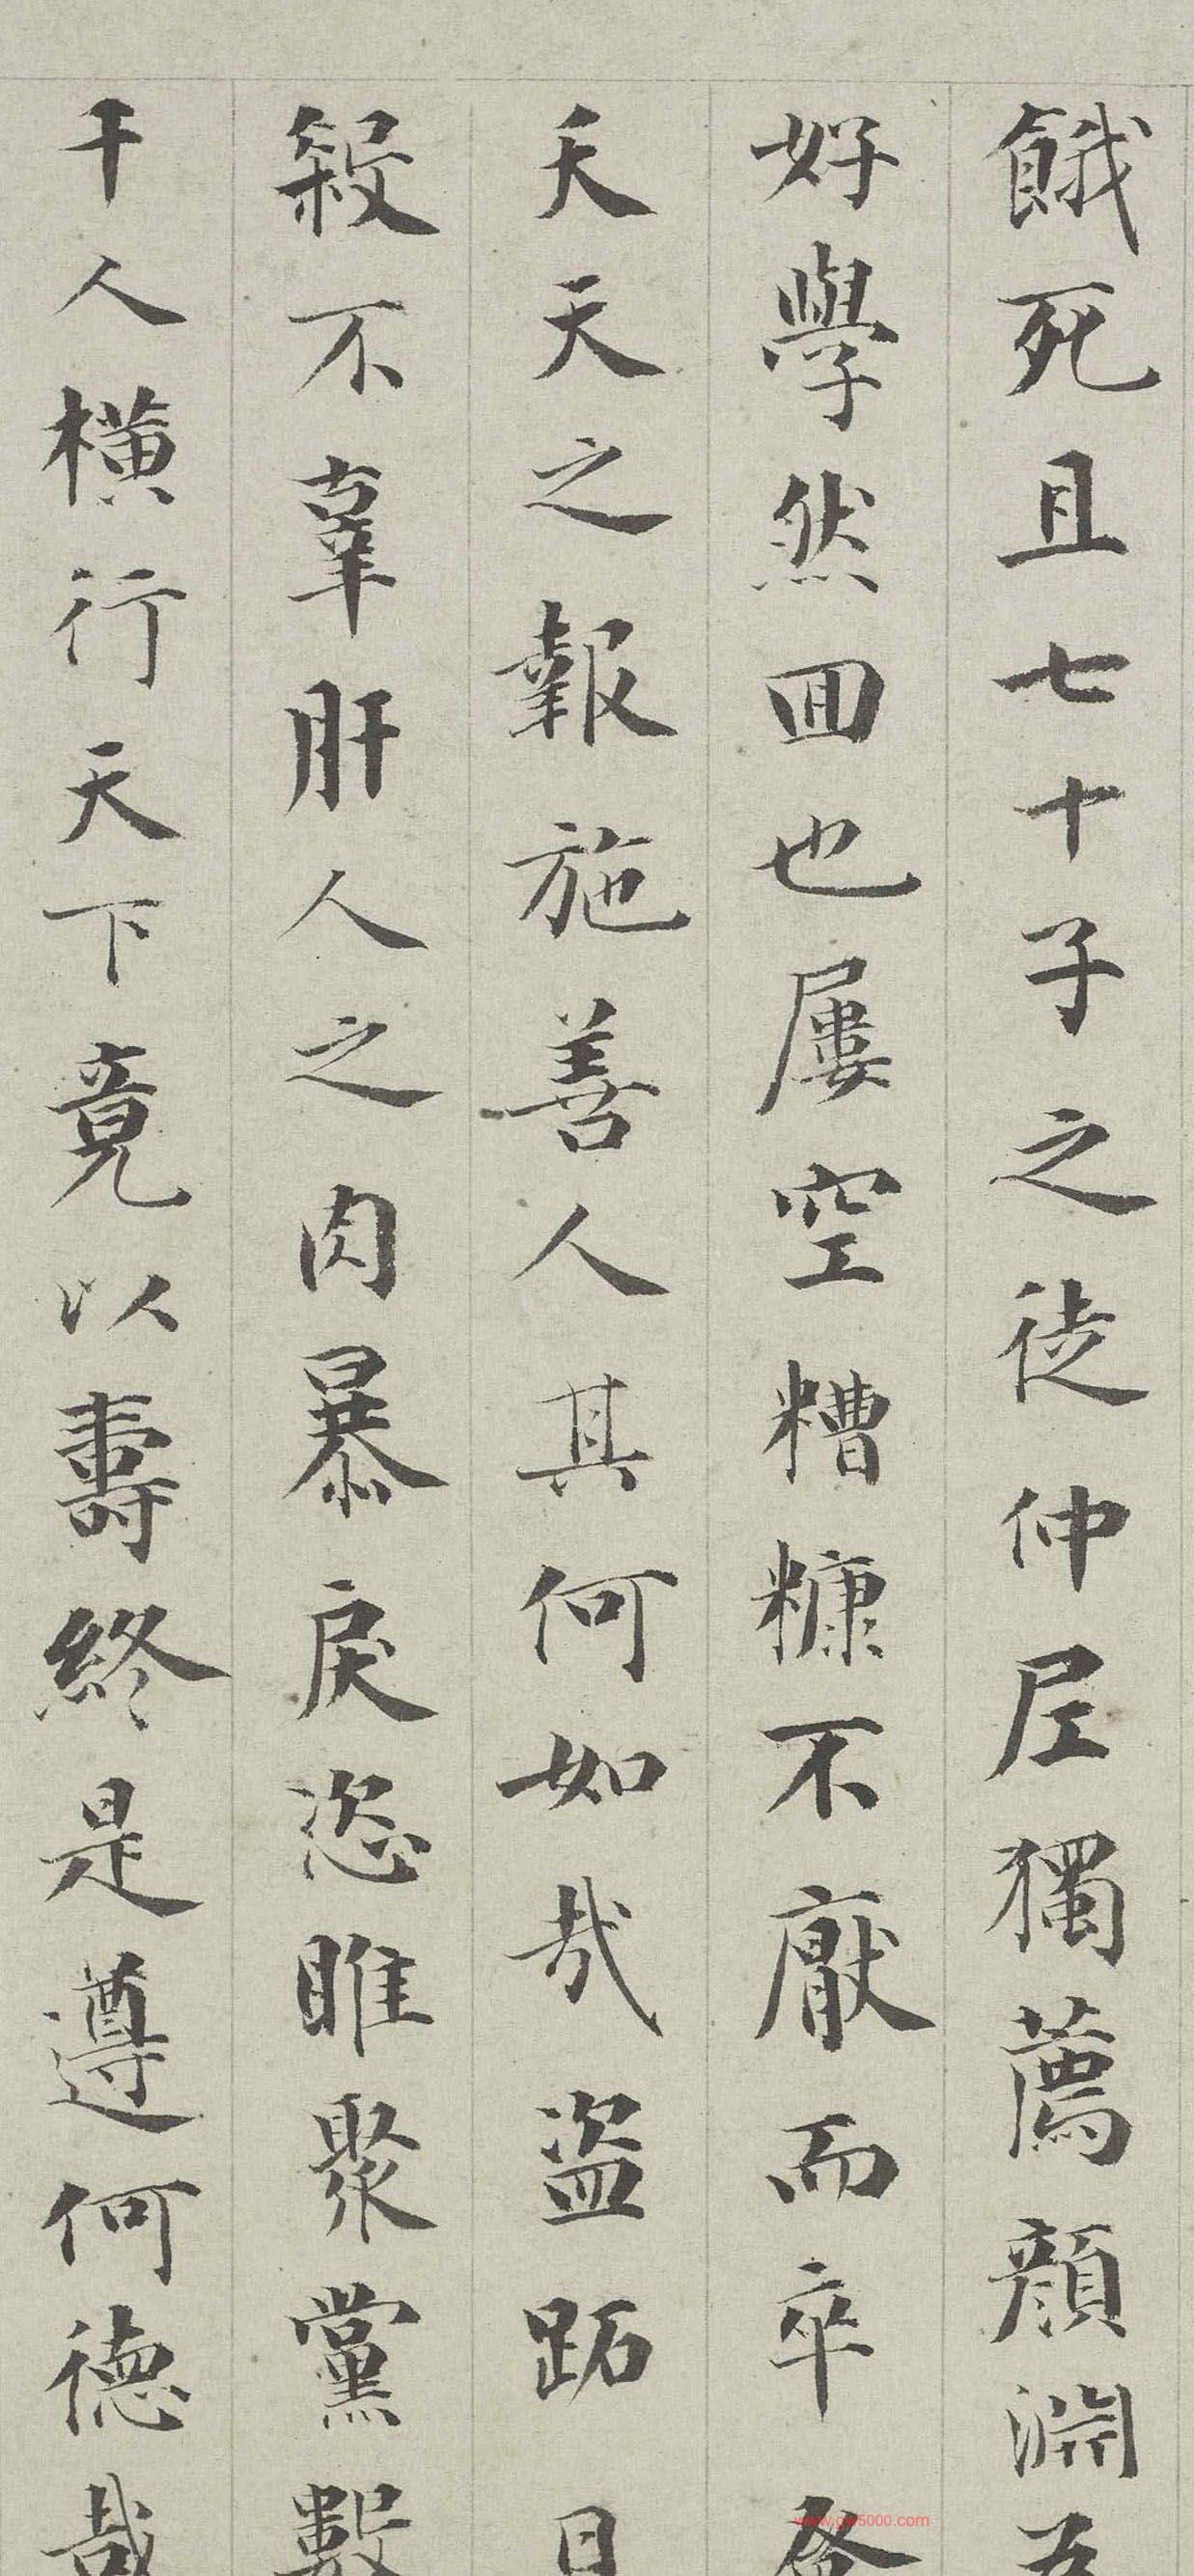 餓死且七十子之徒仲尼獨薦顏淵為
好學然回也屢空糟糠不厭而卒蚤
夭天之報施善人其何如哉盜跖日
殺不辜肝人之肉暴戾恣睢聚黨數
千人橫行天下竟以壽終是遵何德哉
www.gx5000.com